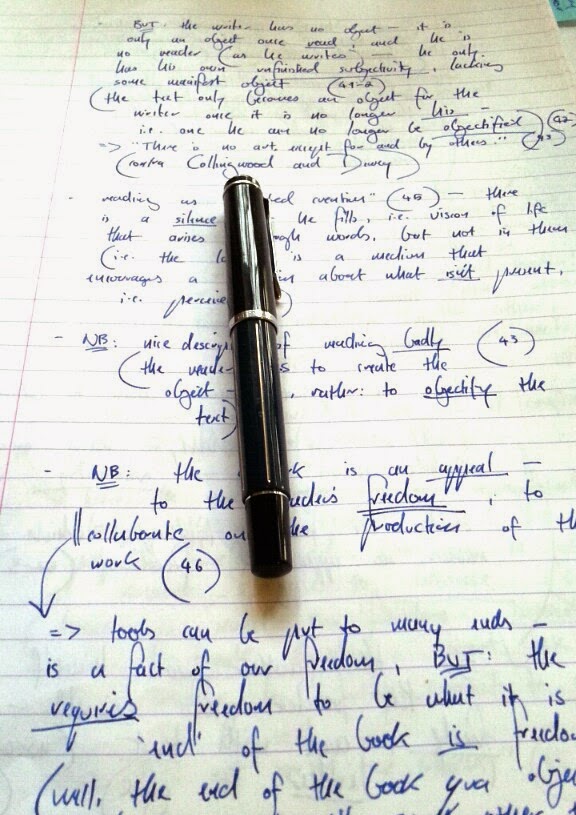 - BUT: the writer has no object - it is
only an object once read, and he is
no reader (as he writes) - he only
has his own unfinished subjectivity, lacking
some manifest object (41-2)
(the text only becomes an object for the
writer once it is no longer his -
i.e. one he can no longer be objectified) (42)
=> "There is no art except for and by others." (43)
(contra Collingwood and Dewey)
- reading as creation" (45) - there
is a silence he fills, i.e. vision of life
that arises words, but not in them
(i.e. the is a medium that
encourages a about what isn't present,
i.e.
- NB: nice of reading badly (43)
(the to create the
object - , rather: to objectify the
text)
- NB: the is an appeal -
to the freedom, to
collaborate on the production of
work (46)
=> tools can be put to many ends -
is a fact of our freedom, BUT: the
requires freedom to be what it is
'end' of the book is
(well, the end of the book qua